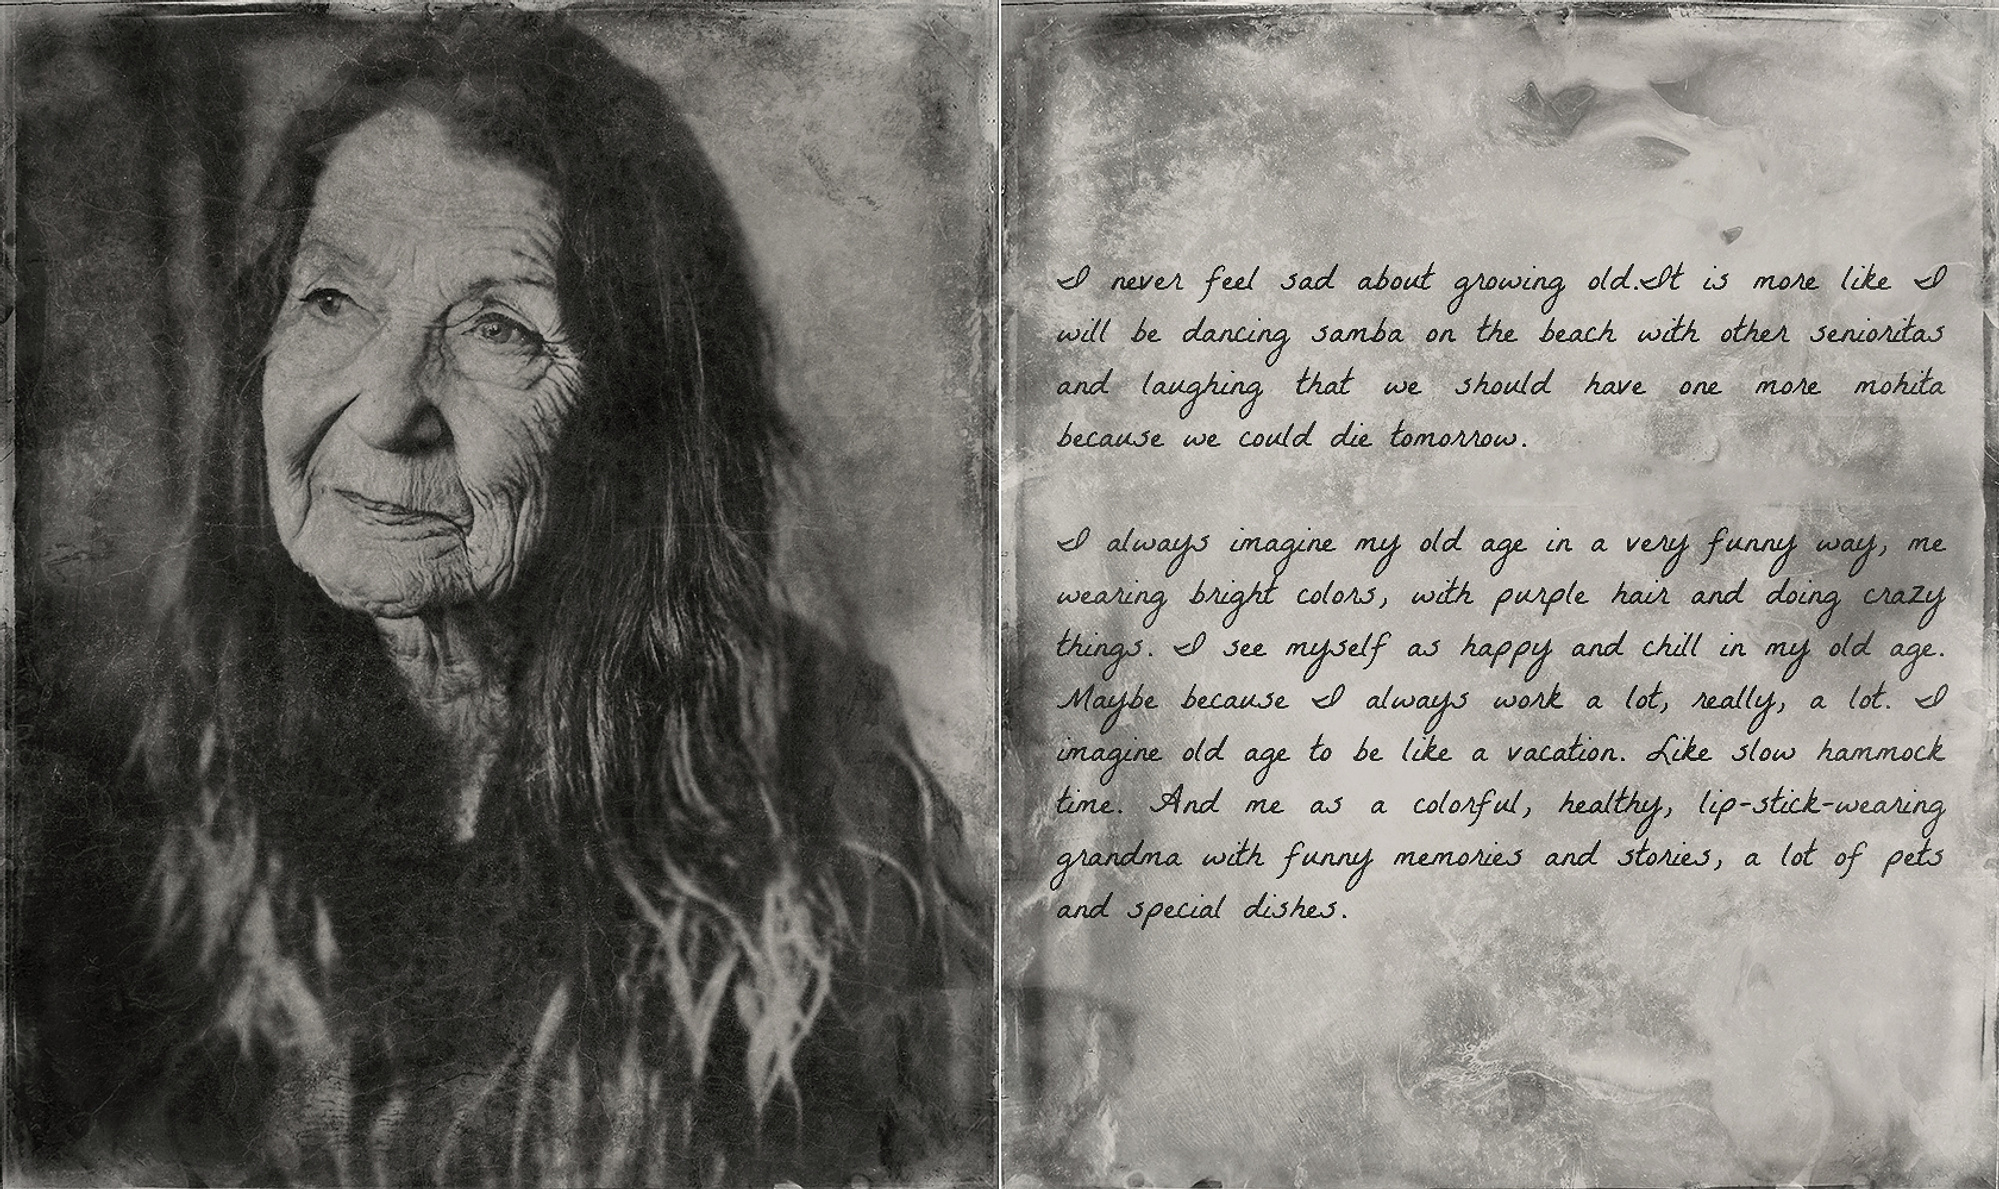 I never feel sad about growing old.It is more like I
will be dancing samba on the beach with other senioritas
and laughing that we should have one more mohita
because we could die tomorrow.
I always imagine my old age in a very funny way, me
wearing bright colors, with purple hair and doing crazy
things. I see myself as happy and chill in my old age.
Maybe because I always work a lot, really, a lot. I
imagine old age to be like a vacation. Like slow hammock
time. And me as a colorful, healthy, lip-stick-wearing
grandma with funny memories and stories, a lot of pets
and special dishes.